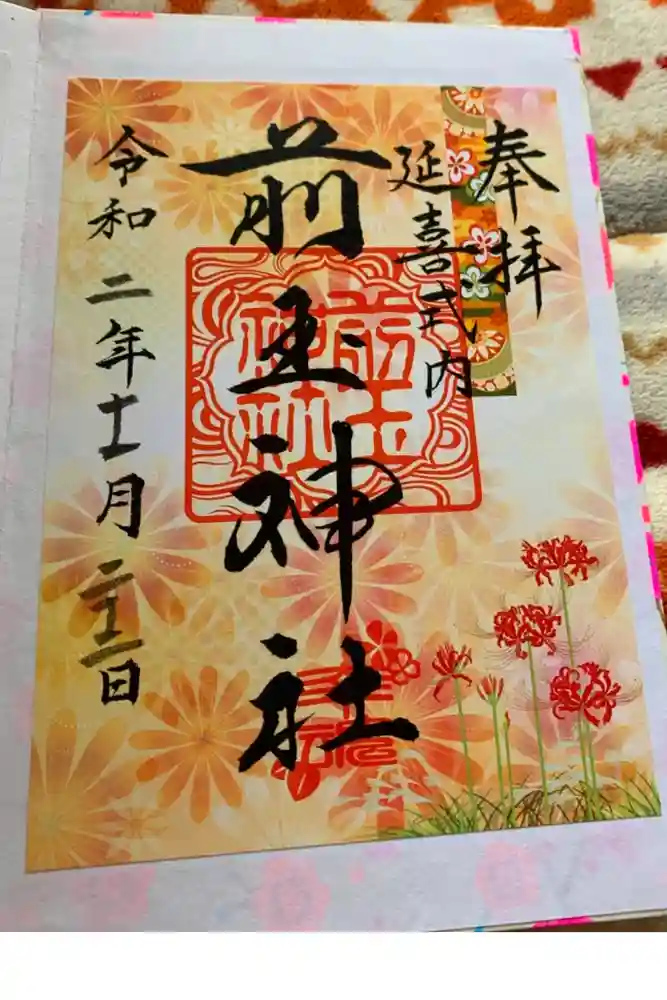 奉拝
延喜式内
前玉神社
前玉神社
令和二年十一月二十二日